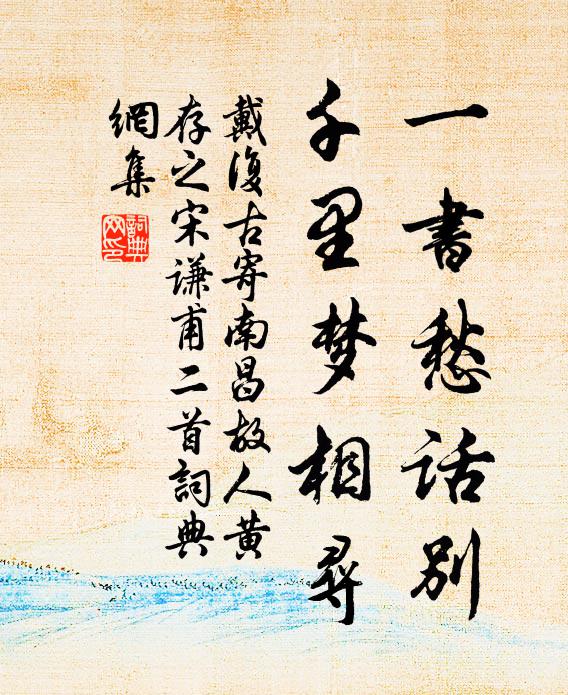 一書愁話別
千里梦相尋
戴復古寄南昌故人黄
存之宋谦甫二首詞典
網集
詞典
网印